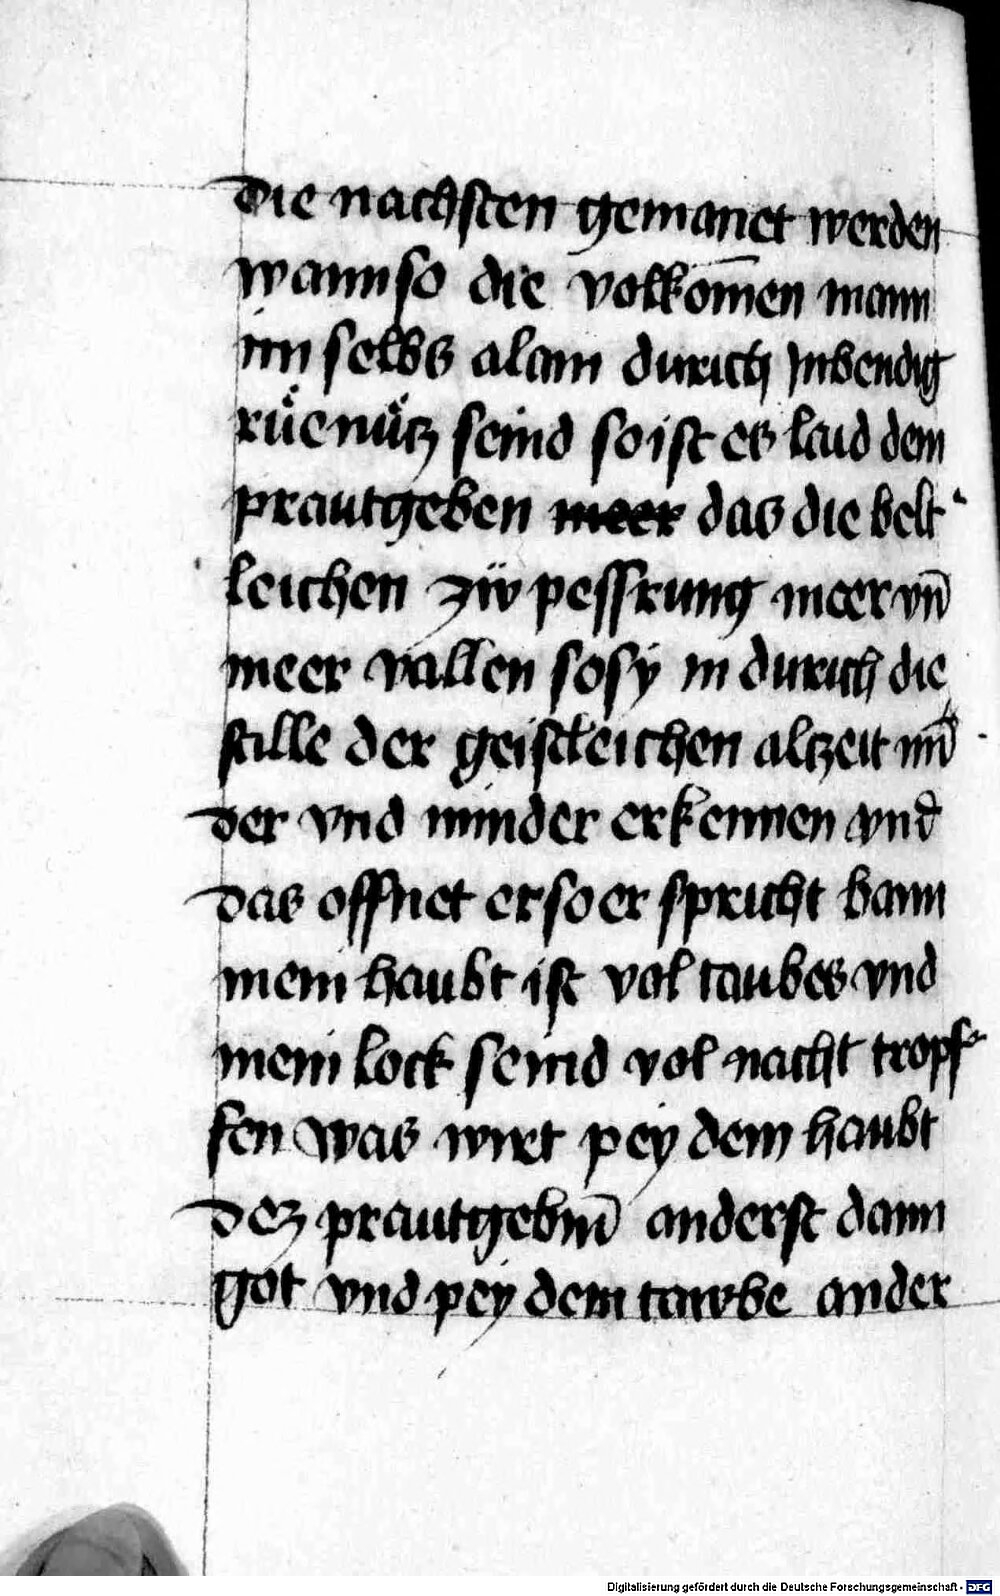 die nachsten gemanet werden
wann so die volkom̄en mann
im selbs alain durich Inbendig
rüe nücz seind so ist es laid dem
prautgeben meer das die belt
leichen zü pessrung meer vn̄
meer vallen so sy in durich die
stille der geistleichen alzeit min̄
der vnd minder erkennen vnd
das offnet er so er spricht bann
mein haubt ist vol taubes vnd
mein lock seind vol nacht tropf
fen was wirt pey dem haubt
dez prautgebm̄ anderst dann
got vnd pey dem tawbe ander
Digitalisierung gefördert durch die Deutsche Forschungsgemeinschaft - DFG